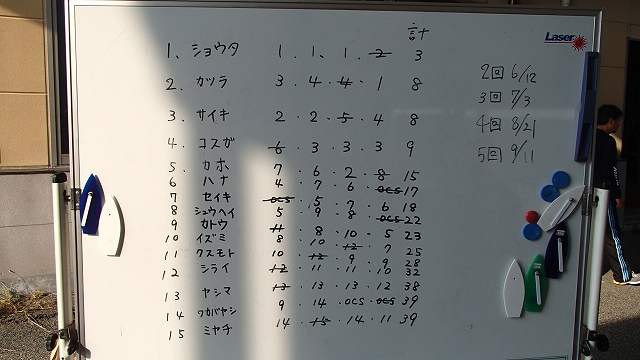 計
Laser
1. ショウタ 1. 1. 1. 2 3
2. カツラ 3. 4. 4. 1 8
3. サイキ 2. 2. 5. 4 8
4. コスガ 6. 3. 3. 3 9
5. カホ 7. 6. 2. 8 15
6 ハナ 4. 7. 6. OCS 17
7 セイキ OCS. 5. 7. 6 18
8 シュウヘイ 5. 9. 8. OCS 22
9 カトウ 11. 8. 10. 5 23
10 イズミ 8. 10. 12. 7 25
11 クスモト 10. 12. 9. 9 28
12 シライ 12. 11. 11. 10 32
13 ヤシマ 13. 13. 13. 12 38
14 ワカバヤシ 9. 14. OCS. OCS 39
15 ミヤチ 14. 15. 14. 11 39
2回 6/12
3回 7/3
4回 8/21
5回 9/11